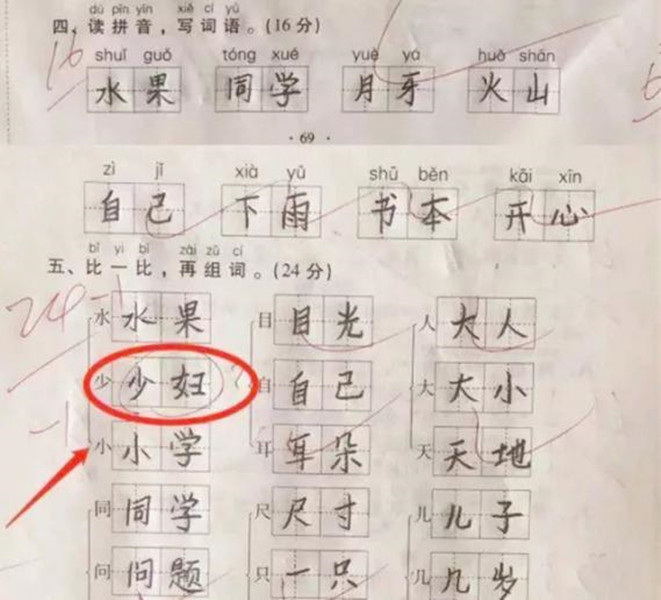 dú pīn yīn xiě cí yǔ
四、读拼音，写词语。(16分)
16
shuǐ guǒ tóng xué yuè yá huǒ shān
水果 同学 月牙 火山
·69·
zì jǐ xià yǔ shū běn kāi xīn
自己 下雨 书本 开心
bǐ yi bǐ zài zǔ cí
五、比一比，再组词。(24分)
24-1
水 水果 目 目光 人 大人
少 少妇 自 自己 大 大小
-1
小 小学 耳 耳朵 天 天地
同 同学 尺 尺寸 儿 儿子
问 问题 只 一只 几 几岁